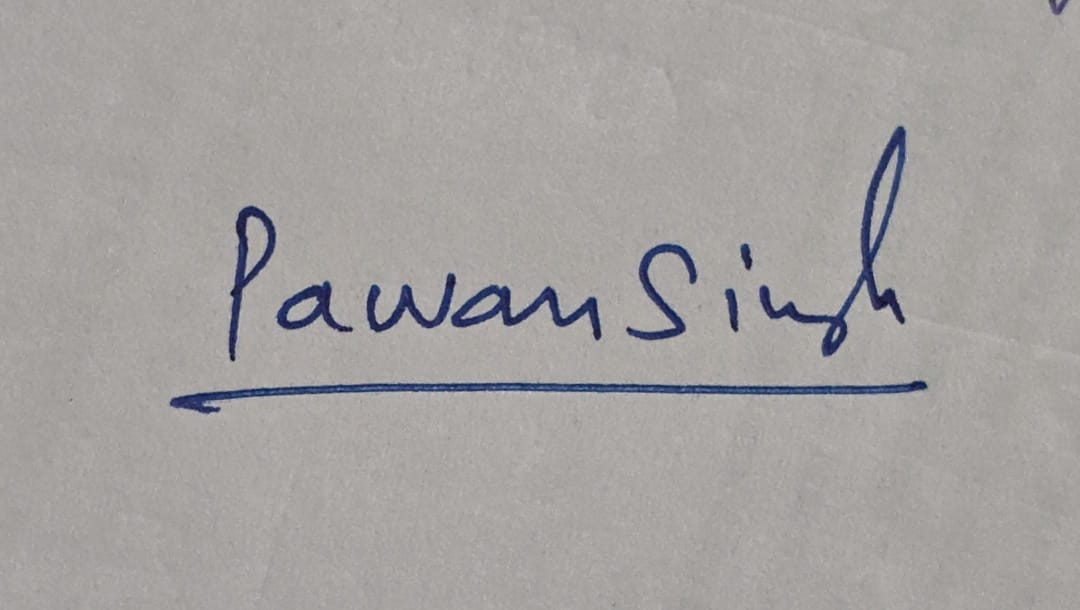 Pawan Singh